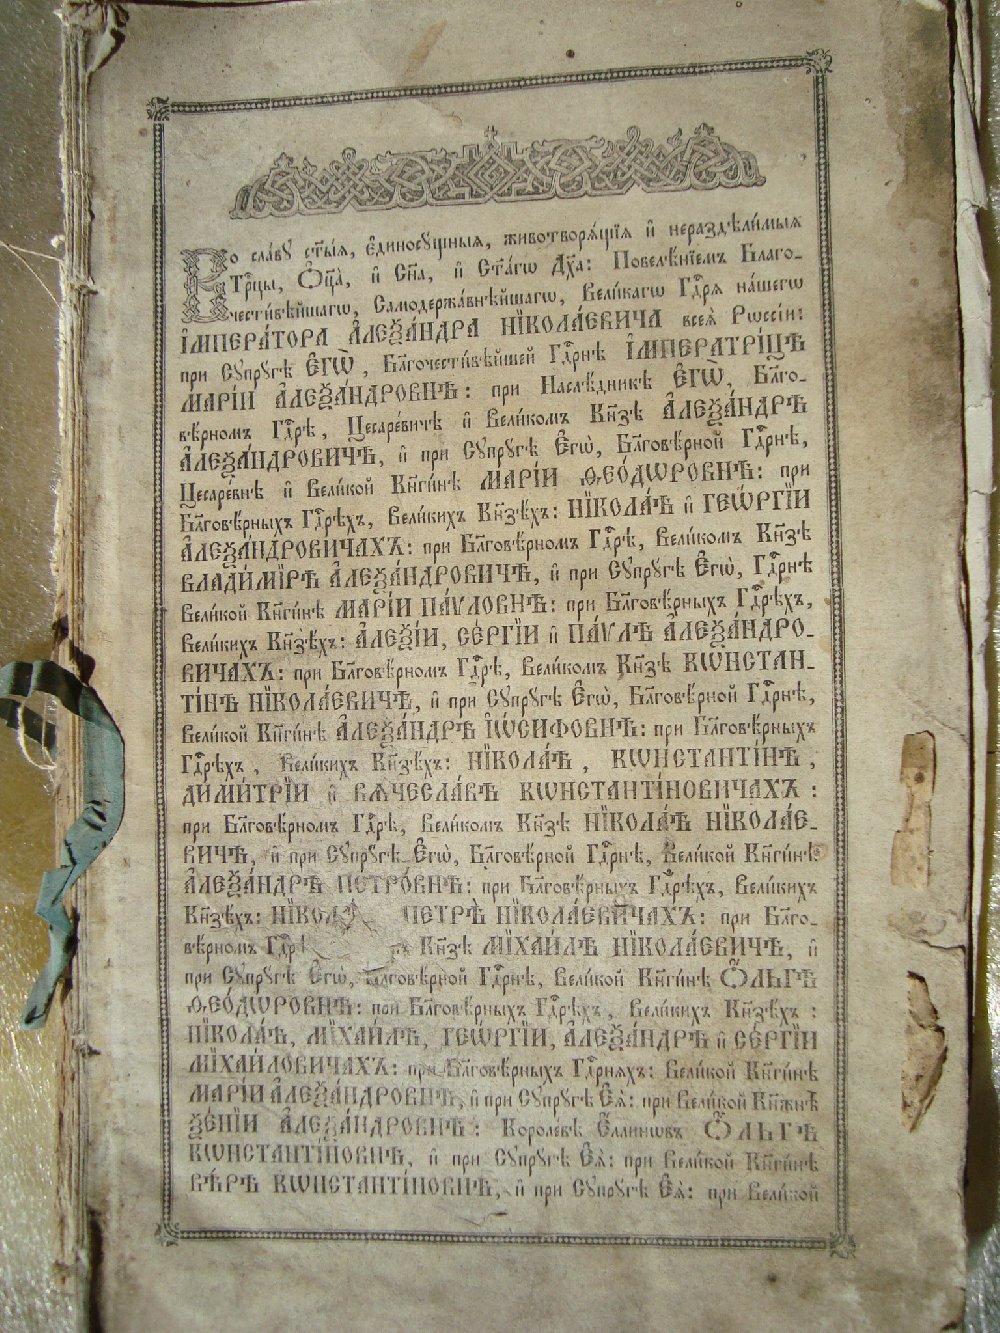 Во сла́вꙋ ст҃ы́ѧ, є҆диносꙋ́щныѧ, животворѧ́щїѧ и҆ нераздѣли́мыѧ
Тр҃цы, Ѻ҆ц҃а̀, и҆ Сн҃а, и҆ Ст҃а́гѡ Дх҃а: Повелѣ́нїемъ Благо-
чести́вѣйшагѡ, Самодержа́внѣйшагѡ, Вели́кагѡ Гдⷭ҇рѧ на́шегѡ
І҆МПЕРА́ТОРА А҆ЛЕѮА́НДРА НЇКОЛА́ЕВИЧА всеѧ̀ Рѡссі́и:
при Сꙋпрꙋ́гѣ Є҆ГѠ̀, Бл҃гочести́вѣйшей Гдⷭ҇рнѣ І҆МПЕРАТРИ́ЦѢ
МАРІ́И А҆ЛЕѮА́НДРОВНѢ: при Наслѣ́дникѣ Є҆ГѠ̀, Бл҃го-
вѣ́рномъ Гдⷭ҇рѣ, Цесаре́вичѣ и҆ Вели́комъ Кн҃зѣ А҆ЛЕѮА́НДРѢ
А҆ЛЕѮА́НДРОВИЧѢ, и҆ при Сꙋпрꙋ́гѣ Є҆гѡ̀, Бл҃говѣ́рной Гдⷭ҇рнѣ,
Цесаре́внѣ и҆ Вели́кой Кн҃ги́нѣ МАРІ́И Ѳ҆ЕО́ДѠРОВНѢ: при
Бл҃говѣ́рныхъ Гдⷭ҇рѣхъ, Вели́кихъ Кн҃зѣ́хъ: НЇКОЛА́Ѣ и҆ ГЕѠ́РГЇИ
А҆ЛЕѮА́НДРОВИЧАХЪ: при Бл҃говѣ́рномъ Гдⷭ҇рѣ, Вели́комъ Кн҃зѣ
ВЛАДИ́МЇРѢ А҆ЛЕѮА́НДРОВИЧѢ, и҆ при Сꙋпрꙋ́гѣ Є҆гѡ̀, Гдⷭ҇рнѣ
Вели́кой Кн҃ги́нѣ МАРІ́И ПА́ѴЛОВНѢ: при Бл҃говѣ́рныхъ Гдⷭ҇рѣхъ,
Вели́кихъ Кн҃зѣ́хъ: А҆ЛЕѮІ́И, СЕ́РГЇИ и҆ ПА́ѴЛѢ А҆ЛЕѮА́НДРО-
ВИЧАХЪ: при Бл҃говѣ́рномъ Гдⷭ҇рѣ, Вели́комъ Кн҃зѣ КѠНСТАН-
ТІ́НѢ НЇКОЛА́ЕВИЧѢ, и҆ при Сꙋпрꙋ́гѣ Є҆гѡ̀, Бл҃говѣ́рной Гдⷭ҇рнѣ,
Вели́кой Кн҃ги́нѣ А҆ЛЕѮА́НДРѢ І҆Ѡ́СИФОВНѢ: при Бл҃говѣ́рныхъ
Гдⷭ҇рѣхъ, Вели́кихъ Кн҃зѣ́хъ: НЇКОЛА́Ѣ, КѠНСТАНТІ́НѢ,
ДИМИ́ТРЇИ и҆ ВѦЧЕСЛА́ВѢ КѠНСТАНТІ́НОВИЧАХЪ:
при Бл҃говѣ́рномъ Гдⷭ҇рѣ, Вели́комъ Кн҃зѣ НЇКОЛА́Ѣ НЇКОЛА́Е-
ВИЧѢ, и҆ при Сꙋпрꙋ́гѣ Є҆гѡ̀, Бл҃говѣ́рной Гдⷭ҇рнѣ, Вели́кой Кн҃ги́нѣ
А҆ЛЕѮА́НДРѢ ПЕТРО́ВНѢ: при Бл҃говѣ́рныхъ Гдⷭ҇рѣхъ, Вели́кихъ
Кн҃зѣ́хъ: ПЕТРѢ̀ НЇКОЛА́ЕВИЧАХЪ: при Бл҃го-
вѣ́рномъ Кн҃зѣ МЇХАИ́ЛѢ НЇКОЛА́ЕВИЧѢ, и҆
при Сꙋпрꙋ́гѣ Є҆гѡ̀, Бл҃говѣ́рной Гдⷭ҇рнѣ, Вели́кой Кн҃ги́нѣ Ѻ҆́ЛЬГѢ
Ѳ҆ЕО́ДѠРОВНѢ: при Бл҃говѣ́рныхъ Гдⷭ҇рѣхъ, Вели́кихъ Кн҃зѣ́хъ:
НЇКОЛА́Ѣ, МЇХАИ́ЛѢ, ГЕѠ́РГЇИ, А҆ЛЕѮА́НДРѢ и҆ СЕ́РГЇИ
МЇХАИ́ЛОВИЧАХЪ: при Бл҃говѣ́рныхъ Гдⷭ҇рнѧхъ: Вели́кой Кн҃ги́нѣ
МАРІ́И А҆ЛЕѮА́НДРОВНѢ, и҆ при Сꙋпрꙋ́гѣ Є҆ѧ̀: при Вели́кой Кн҃жнѣ̀
ѮЕ́НЇИ А҆ЛЕѮА́НДРОВНѢ: Короле́вѣ Є҆́ллинѡвъ Ѻ҆́ЛЬГѢ
КѠНСТАНТІ́НОВНѢ, и҆ при Сꙋпрꙋ́гѣ Є҆ѧ̀: при Вели́кой Кн҃ги́нѣ
ВѢ́РѢ КѠНСТАНТІ́НОВНѢ, и҆ при Сꙋпрꙋ́гѣ Є҆ѧ̀: при Вели́кой